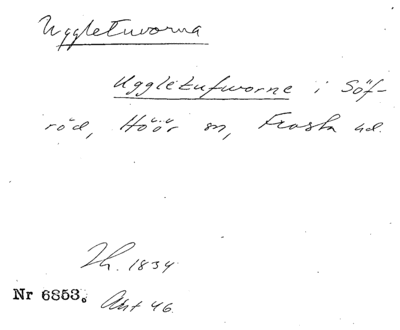 Uggletuvorna
Uggletufworne i Söf-
röd, Höör sn, Frosta hd.
Zh. 1834
Nr 6853. Akt 46.